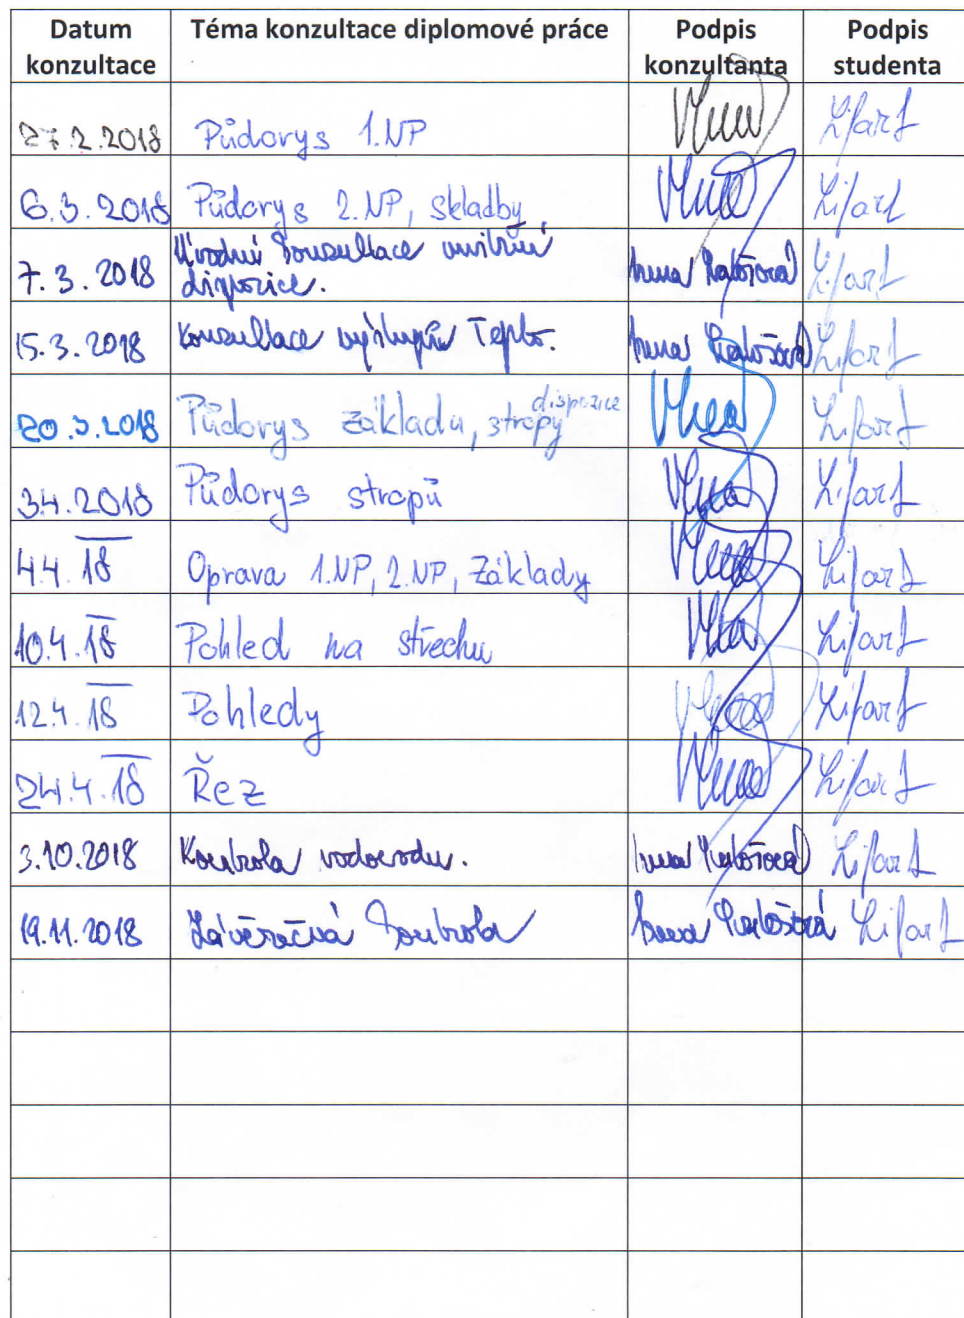 Datum konzultace Téma konzultace diplomové práce Podpis konzultanta Podpis studenta
27.2.2018 Půdorys 1.NP Lifart
6.3.2018 Půdorys 2.NP, skladby Lifart
7.3.2018 Úvodní konzultace vnitřní dispozice. Lifart
15.3.2018 Konzultace výstupů Teplo. Lifart
20.3.2018 Půdorys základu, stropy dispozice Lifart
3.4.2018 Půdorys stropů Lifart
4.4.18 Oprava 1.NP, 2.NP, Základy Lifart
10.4.18 Pohled na střechu Lifart
12.4.18 Pohledy Lifart
24.4.18 Řez Lifart
3.10.2018 Kontrola vodovodu. Lifart
19.11.2018 Závěrečná kontrola Lifart